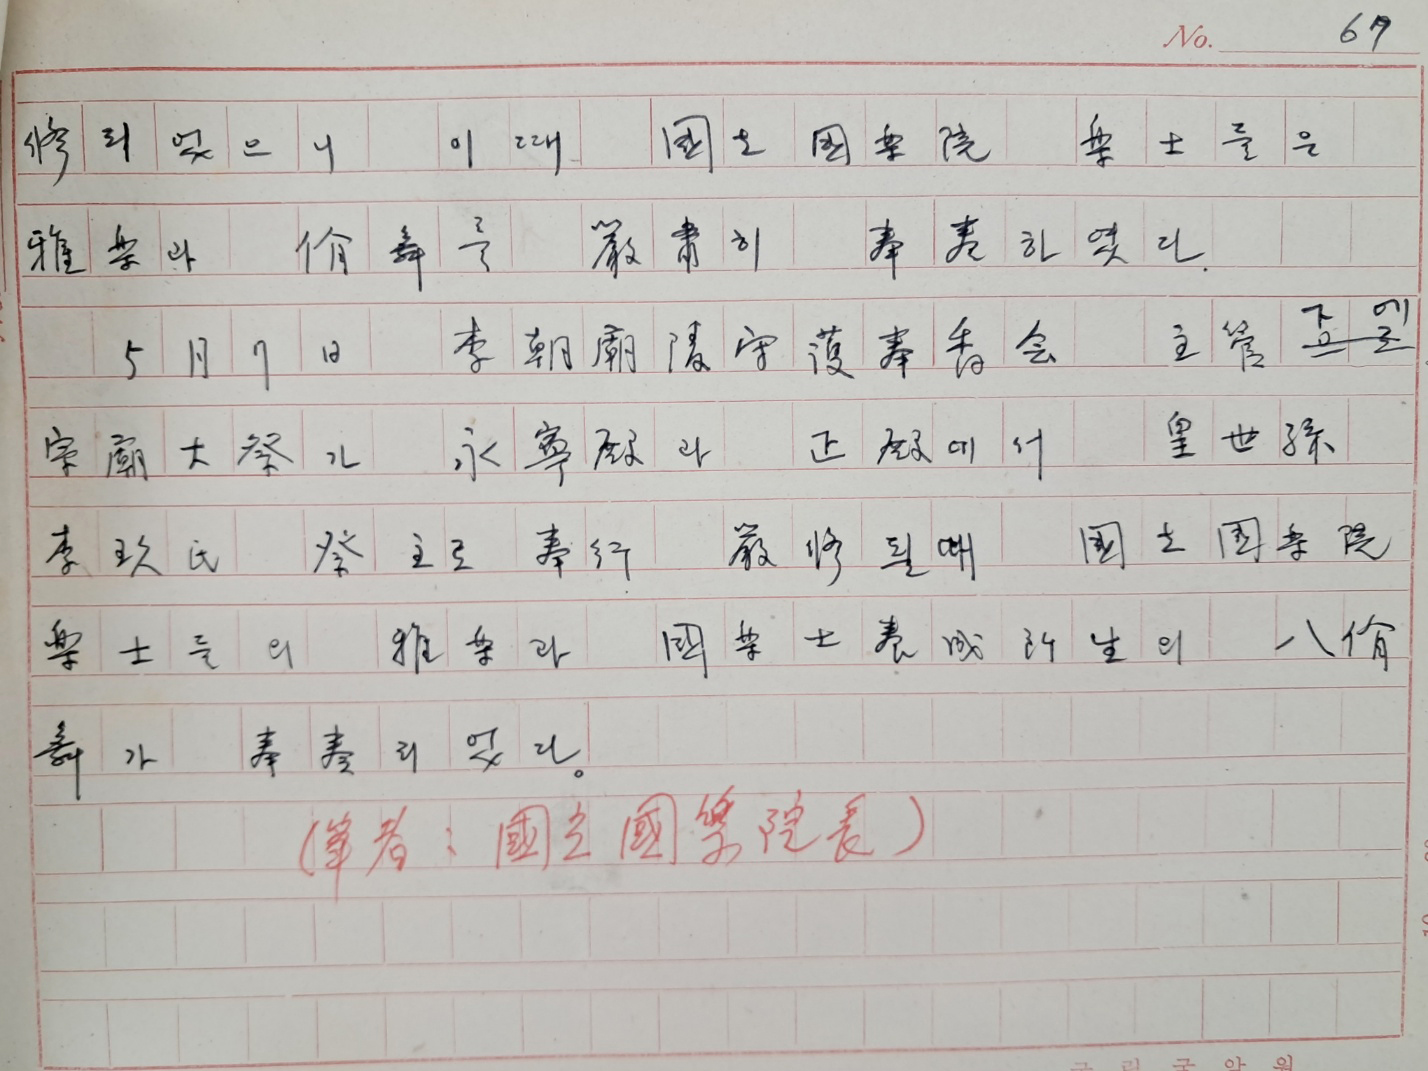 No. 67
修되었으니 이때 國立國楽院 楽士들은
雅楽과 佾舞를 嚴肅히 奉奏하였다.
5月7日 李朝廟陵守護奉香会 主管下에
宗廟大祭가 永寧殿과 正殿에서 皇世孫
李玖氏 祭主로 奉行 嚴修될때 國立國楽院
楽士들의 雅楽과 國楽士養成所生의 八佾
舞가 奉奏되었다。
(筆者: 國立國樂院長)
국립국악원